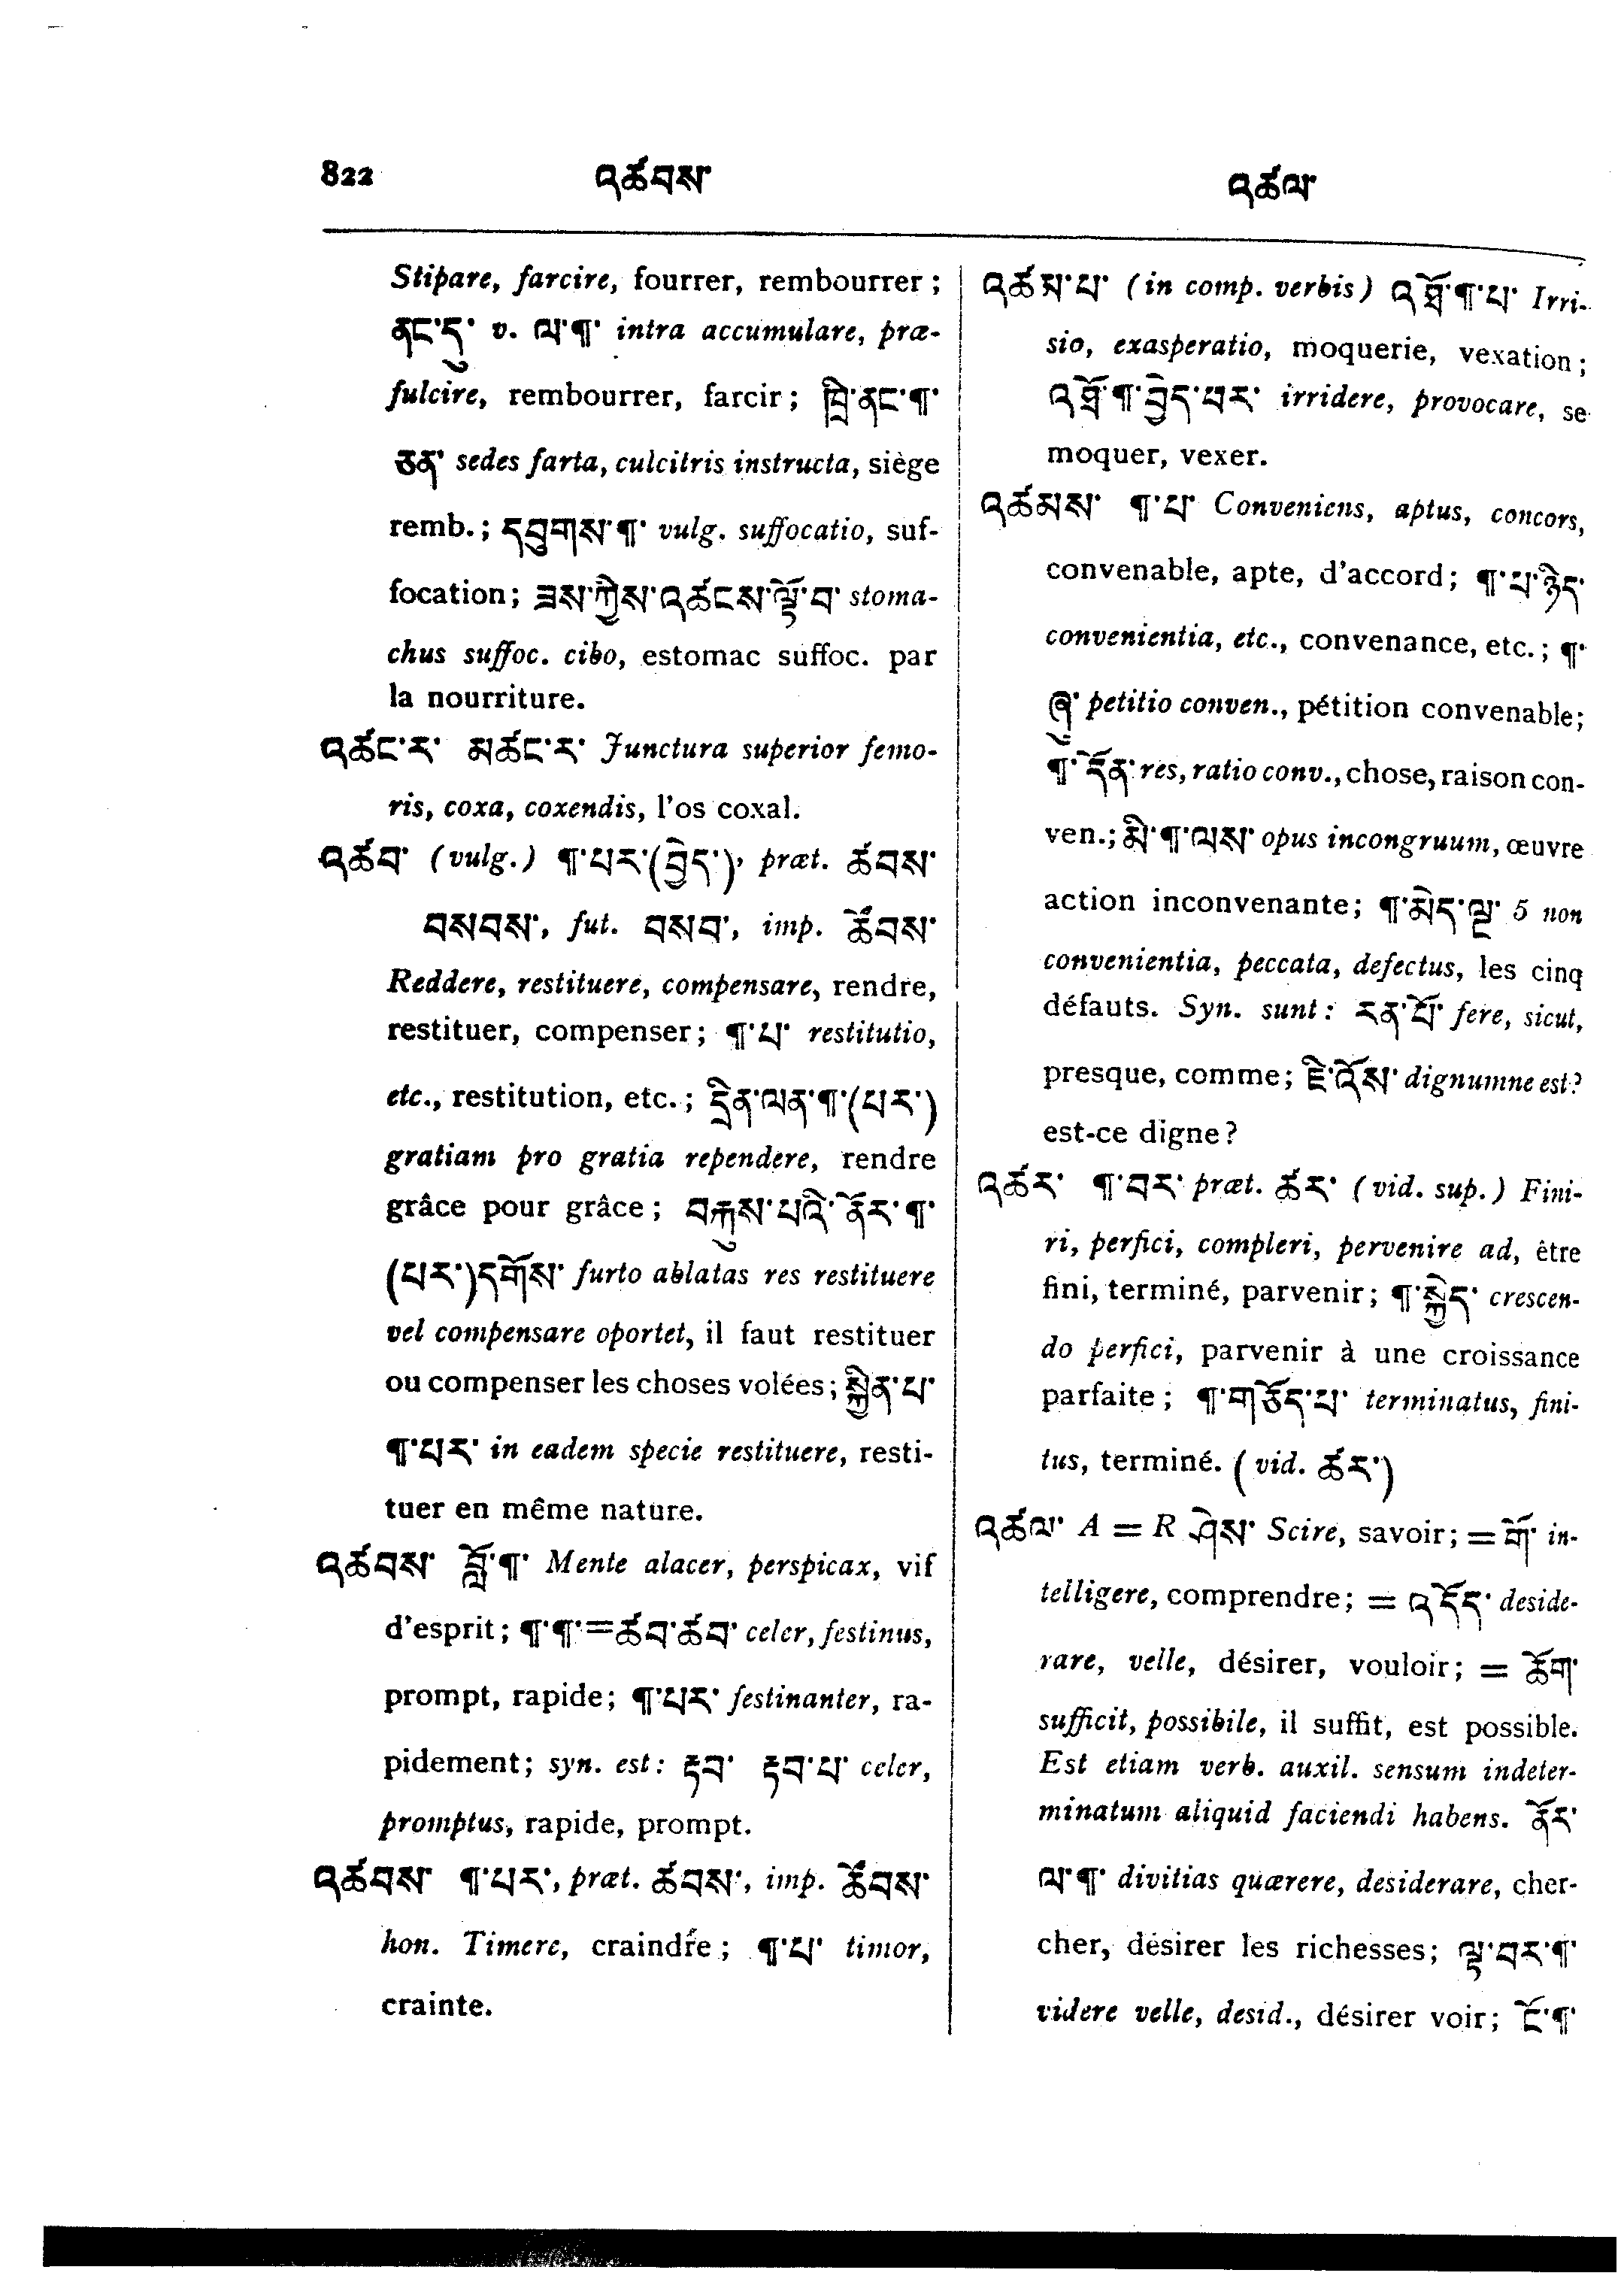 822 འཚབས་ འཚལ་
Stipare, farcire, fourrer, rembourrer ;
ནང་དུ་ v. ལ་¶་ intra accumulare, præ-
fulcire, rembourrer, farcir ; ཁྲི་ནང་¶་
ཅན་ sedes farta, culcitris instructa, siège
remb. ; དབུགས་¶་ vulg. suffocatio, suf-
focation ; ཟས་ཀྱིས་འཚངས་ལྟོ་བ་ stoma-
chus suffoc. cibo, estomac suffoc. par
la nourriture.
འཚང་ར་ མཚང་ར་ Junctura superior femo-
ris, coxa, coxendis, l'os coxal.
འཚབ་ (vulg.) ¶་པར་(བྱེད་), præt. ཚབས་
བསབས་, fut. བསབ་, imp. ཚོབས་
Reddere, restituere, compensare, rendre,
restituer, compenser ; ¶་པ་ restitutio,
etc., restitution, etc. ; དྲིན་ལན་¶་(པར་)
gratiam pro gratia rependere, rendre
grâce pour grâce ; བརྐུས་པའི་ནོར་¶་
(པར་)དགོས་ furto ablatas res restituere
vel compensare oportet, il faut restituer
ou compenser les choses volées ; སྐྱིན་པ་
¶་པར་ in eadem specie restituere, resti-
tuer en même nature.
འཚབས་ བློ་¶་ Mente alacer, perspicax, vif
d'esprit ; ¶་¶་=ཚབ་ཚབ་ celer, festinus,
prompt, rapide ; ¶་པར་ festinanter, ra-
pidement ; syn. est : རྟབ་ རྟབ་པ་ celer,
promptus, rapide, prompt.
འཚབས་ ¶་པར་, præt. ཚབས་, imp. ཚོབས་
hon. Timere, craindre ; ¶་པ་ timor,
crainte.
འཚམ་པ་ (in comp. verbis) འཐོ་¶་པ་ Irri-
sio, exasperatio, moquerie, vexation ;
འཐོ་¶་བྱེད་པར་ irridere, provocare, se
moquer, vexer.
འཚམས་ ¶་པ་ Conveniens, aptus, concors,
convenable, apte, d'accord ; ¶་པ་ཉིད་
convenientia, etc., convenance, etc. ; ¶་
ཞུ་ petitio conven., pétition convenable ;
¶་དོན་ res, ratio conv., chose, raison con-
ven. ; མི་¶་ལས་ opus incongruum, œuvre
action inconvenante ; ¶་མེད་ལྔ་ 5 non
convenientia, peccata, defectus, les cinq
défauts. Syn. sunt : རན་པོ་ fere, sicut,
presque, comme ; ཇི་འོས་ dignumne est ?
est-ce digne ?
འཚར་ ¶་བར་ præt. ཚར་ (vid. sup.) Fini-
ri, perfici, compleri, pervenire ad, être
fini, terminé, parvenir ; ¶་སྐྱེད་ crescen-
do perfici, parvenir à une croissance
parfaite ; ¶་གཅོད་པ་ terminatus, fini-
tus, terminé. (vid. ཚར་)
འཚལ་ A = R ཤེས་ Scire, savoir ; = གོ་ in-
telligere, comprendre ; = འདོད་ deside-
rare, velle, désirer, vouloir ; = ཚོག་
sufficit, possibile, il suffit, est possible.
Est etiam verb. auxil. sensum indeter-
minatum aliquid faciendi habens. ནོར་
ལ་¶་ divitias quærere, desiderare, cher-
cher, désirer les richesses ; ལྟ་བར་¶་
videre velle, desid., désirer voir ; ངོ་¶་